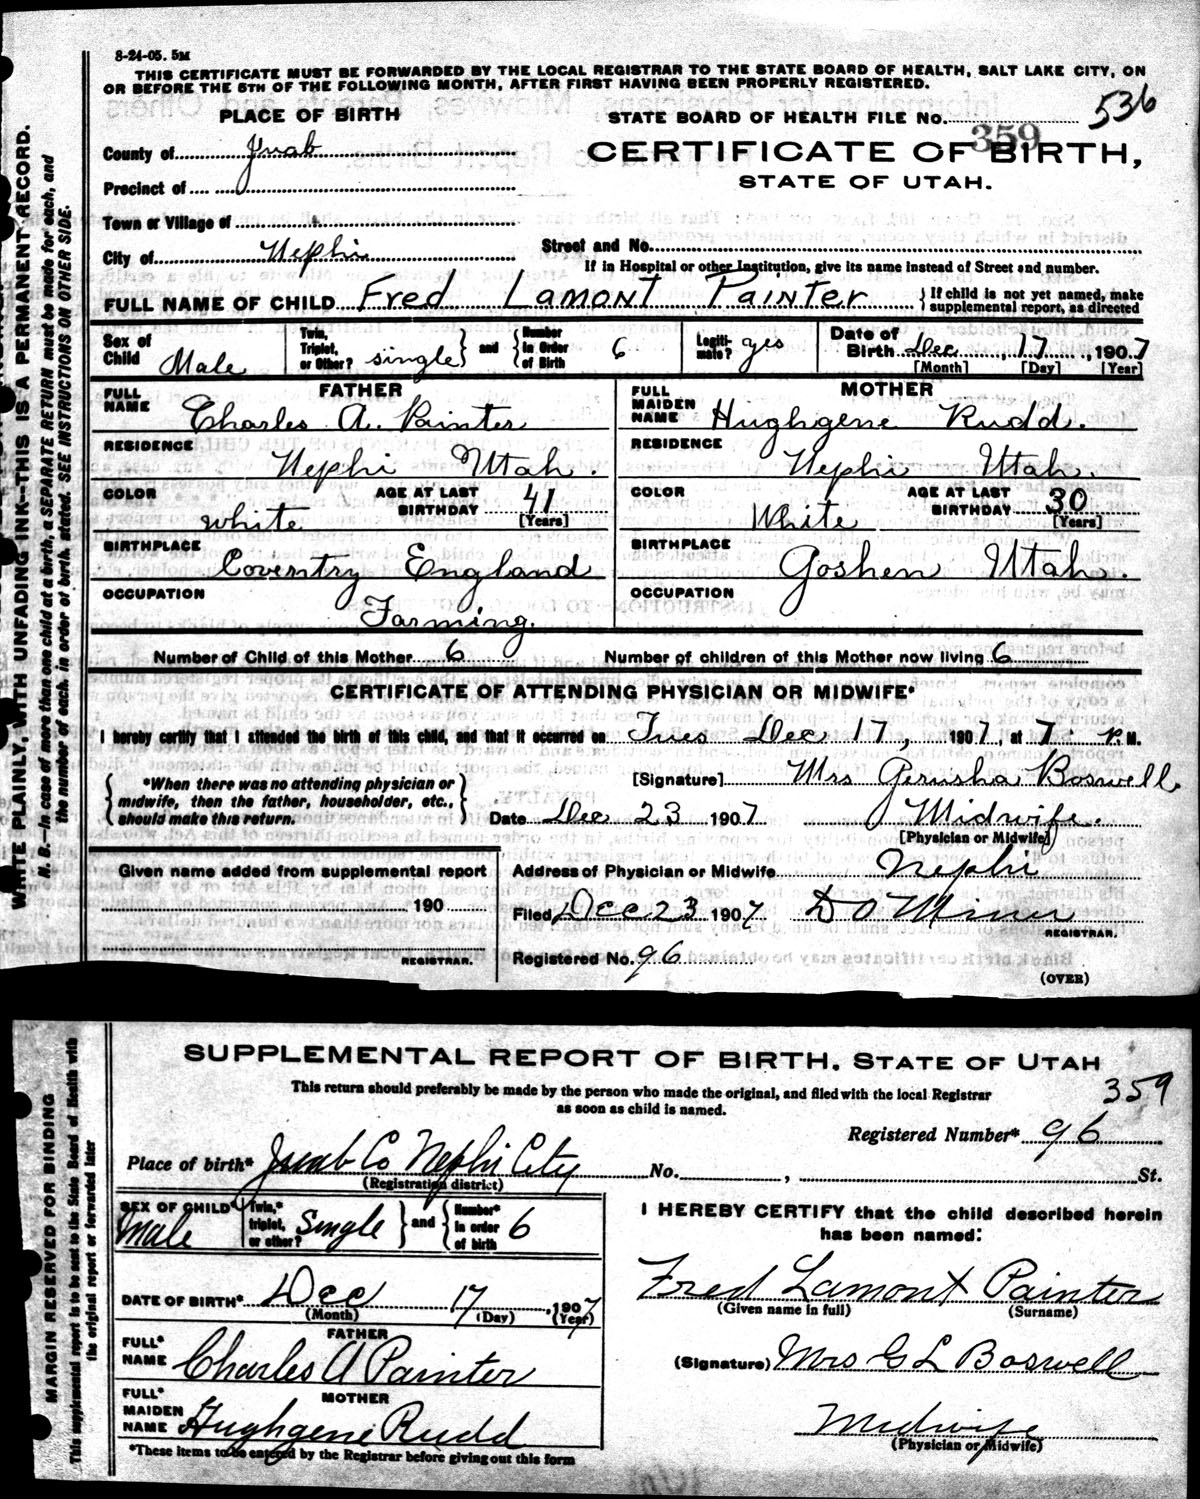 8-24-05. 5M
THIS CERTIFICATE MUST BE FORWARDED BY THE LOCAL REGISTRAR TO THE STATE BOARD OF HEALTH, SALT LAKE CITY, ON
OR BEFORE THE 5TH OF THE FOLLOWING MONTH, AFTER FIRST HAVING BEEN PROPERLY REGISTERED.
PLACE OF BIRTH
STATE BOARD OF HEALTH FILE No. 536
359
County of Juab
CERTIFICATE OF BIRTH,
STATE OF UTAH.
Precinct of
Town or Village of
City of Nephi
Street and No.
If in Hospital or other Institution, give its name instead of Street and number.
FULL NAME OF CHILD Fred Lamont Painter
If child is not yet named, make supplemental report, as directed
Sex of Child Male
Twin, Triplet, or Other? single and Number in Order of Birth 6
Legitimate? yes
Date of Birth Dec 17, 1907
[Month] [Day] [Year]
FATHER
FULL NAME Charles A. Painter
RESIDENCE Nephi Utah
COLOR white AGE AT LAST BIRTHDAY 41 [Years]
BIRTHPLACE Coventry England
OCCUPATION Farming.
MOTHER
FULL MAIDEN NAME Hughgene Rudd.
RESIDENCE Nephi Utah.
COLOR White AGE AT LAST BIRTHDAY 30 [Years]
BIRTHPLACE Goshen Utah.
OCCUPATION
Number of Child of this Mother 6 Number of children of this Mother now living 6
CERTIFICATE OF ATTENDING PHYSICIAN OR MIDWIFE*
I hereby certify that I attended the birth of this child, and that it occurred on Tues Dec 17, 1907, at 7 P.M.
*When there was no attending physician or midwife, then the father, householder, etc., should make this return.
[Signature] Mrs Gerusha Boswell
Date Dec 23 1907 Midwife.
[Physician or Midwife]
Given name added from supplemental report
190
REGISTRAR.
Address of Physician or Midwife Nephi
Filed Dec 23 1907 D O Miner
REGISTRAR.
Registered No. 96
(OVER)
WRITE PLAINLY, WITH UNFADING INK—THIS IS A PERMANENT RECORD.
N. B.—In case of more than one child at a birth, a SEPARATE RETURN must be made for each, and
the number of each, in order of birth, stated. SEE INSTRUCTIONS ON OTHER SIDE.
SUPPLEMENTAL REPORT OF BIRTH. STATE OF UTAH
This return should preferably be made by the person who made the original, and filed with the local Registrar
as soon as child is named.
359
Registered Number* 96
Place of birth* Juab Co Nephi City No. , St.
(Registration district)
SEX OF CHILD* Male
Twin,* triplet, or other? Single and Number* in order of birth 6
DATE OF BIRTH* Dec 17 1907
(Month) (Day) (Year)
FATHER
FULL* NAME Charles A Painter
MOTHER
FULL* MAIDEN NAME Hughgene Rudd
*These items to be entered by the Registrar before giving out this form
I HEREBY CERTIFY that the child described herein
has been named:
Fred Lamont Painter
(Given name in full) (Surname)
(Signature) Mrs G L Boswell
Midwife
(Physician or Midwife)
MARGIN RESERVED FOR BINDING
This supplemental report is to be sent to the State Board of Health with
the original report or forwarded later